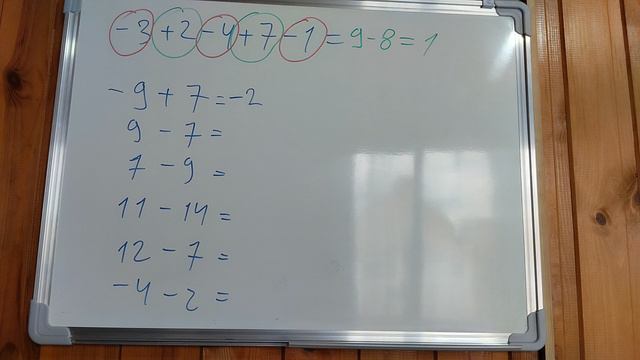 -3+2-4+7-1=9-8=1
-9+7=-2
9-7=
7-9=
11-14=
12-7=
-4-2=